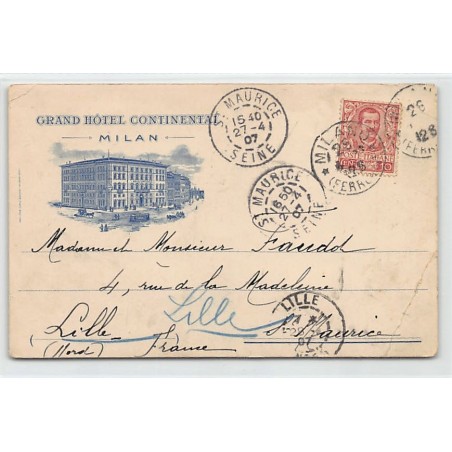 GRAND HÔTEL CONTINENTAL
MILAN
ST MAURICE
15 40
27-4
07
SEINE
MILANO
(FERROVIA)
26
12 S
(FERR
POSTE ITALIANE
10
ST MAURICE
16 50
27-4
07
SEINE
Madame et Monsieur Faudot
4, rue de la Madeleine
Lille
LILLE
07
Lille St Maurice
(Nord) France